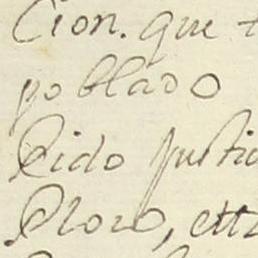 Cion. que t
poblado
Pido justici
Ploro, etta